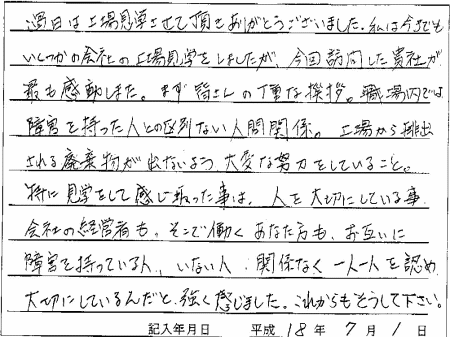 過日は工場見学させて頂きありがとうございました。私は今までも
いくつかの会社の工場見学をしましたが、今回訪問した貴社が
最も感動しました。まず皆さんの丁重な挨拶。職場内では
障害を持った人との区別ない人間関係。工場から排出
される廃棄物が出ないよう大変な努力をしていること。
特に見学をして感じ取った事は、人を大切にしている事、
会社の経営者も、そこで働くあなた方も、お互いに
障害を持っている人、いない人、関係なく一人一人を認め
大切にしているんだと、強く感じました。これからもそうして下さい。
記入年月日 平成 18 年 7 月 1 日